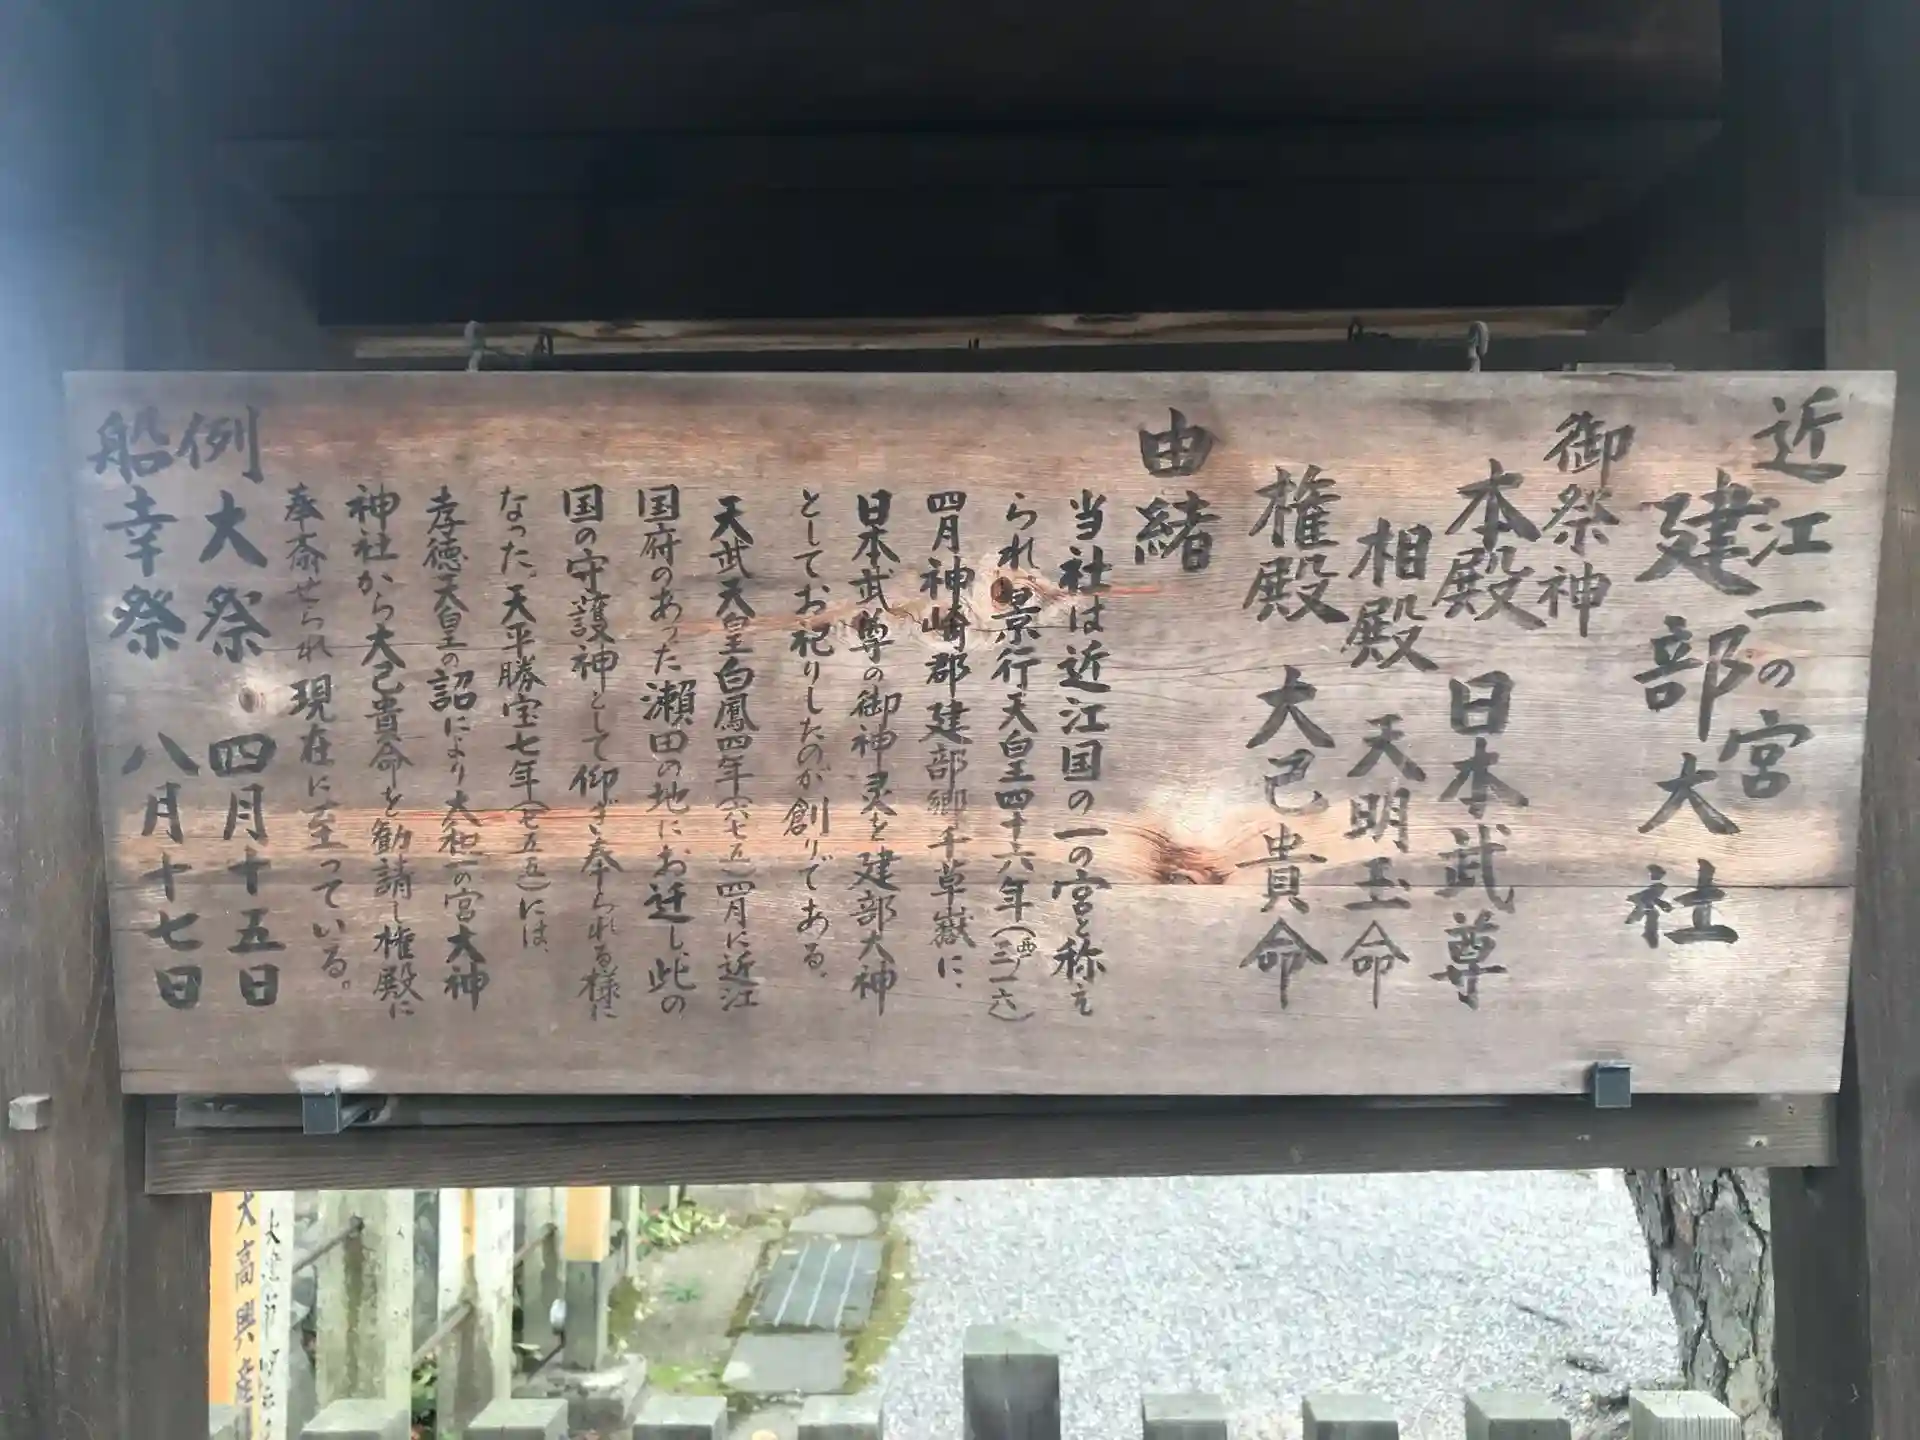 近江一の宮
建部大社
御祭神
本殿 日本武尊
相殿 天明玉命
権殿 大己貴命
由緒
当社は近江国の一の宮と称え
られ、景行天皇四十六年(西三一六)
四月神崎郡建部郷千草嶽に、
日本武尊の御神灵を建部大神
としてお祀りしたのが創りである。
天武天皇白鳳四年(六七五)四月に近江
国府のあった瀬田の地にお迁し、此の
国の守護神として仰ぎ奉られる様に
なった。天平勝宝七年(七五五)には、
孝徳天皇の詔により大和一の宮大神
神社から大己貴命を勧請し権殿に
奉斎せられ現在に至っている。
例大祭 四月十五日
船幸祭 八月十七日
大高興産